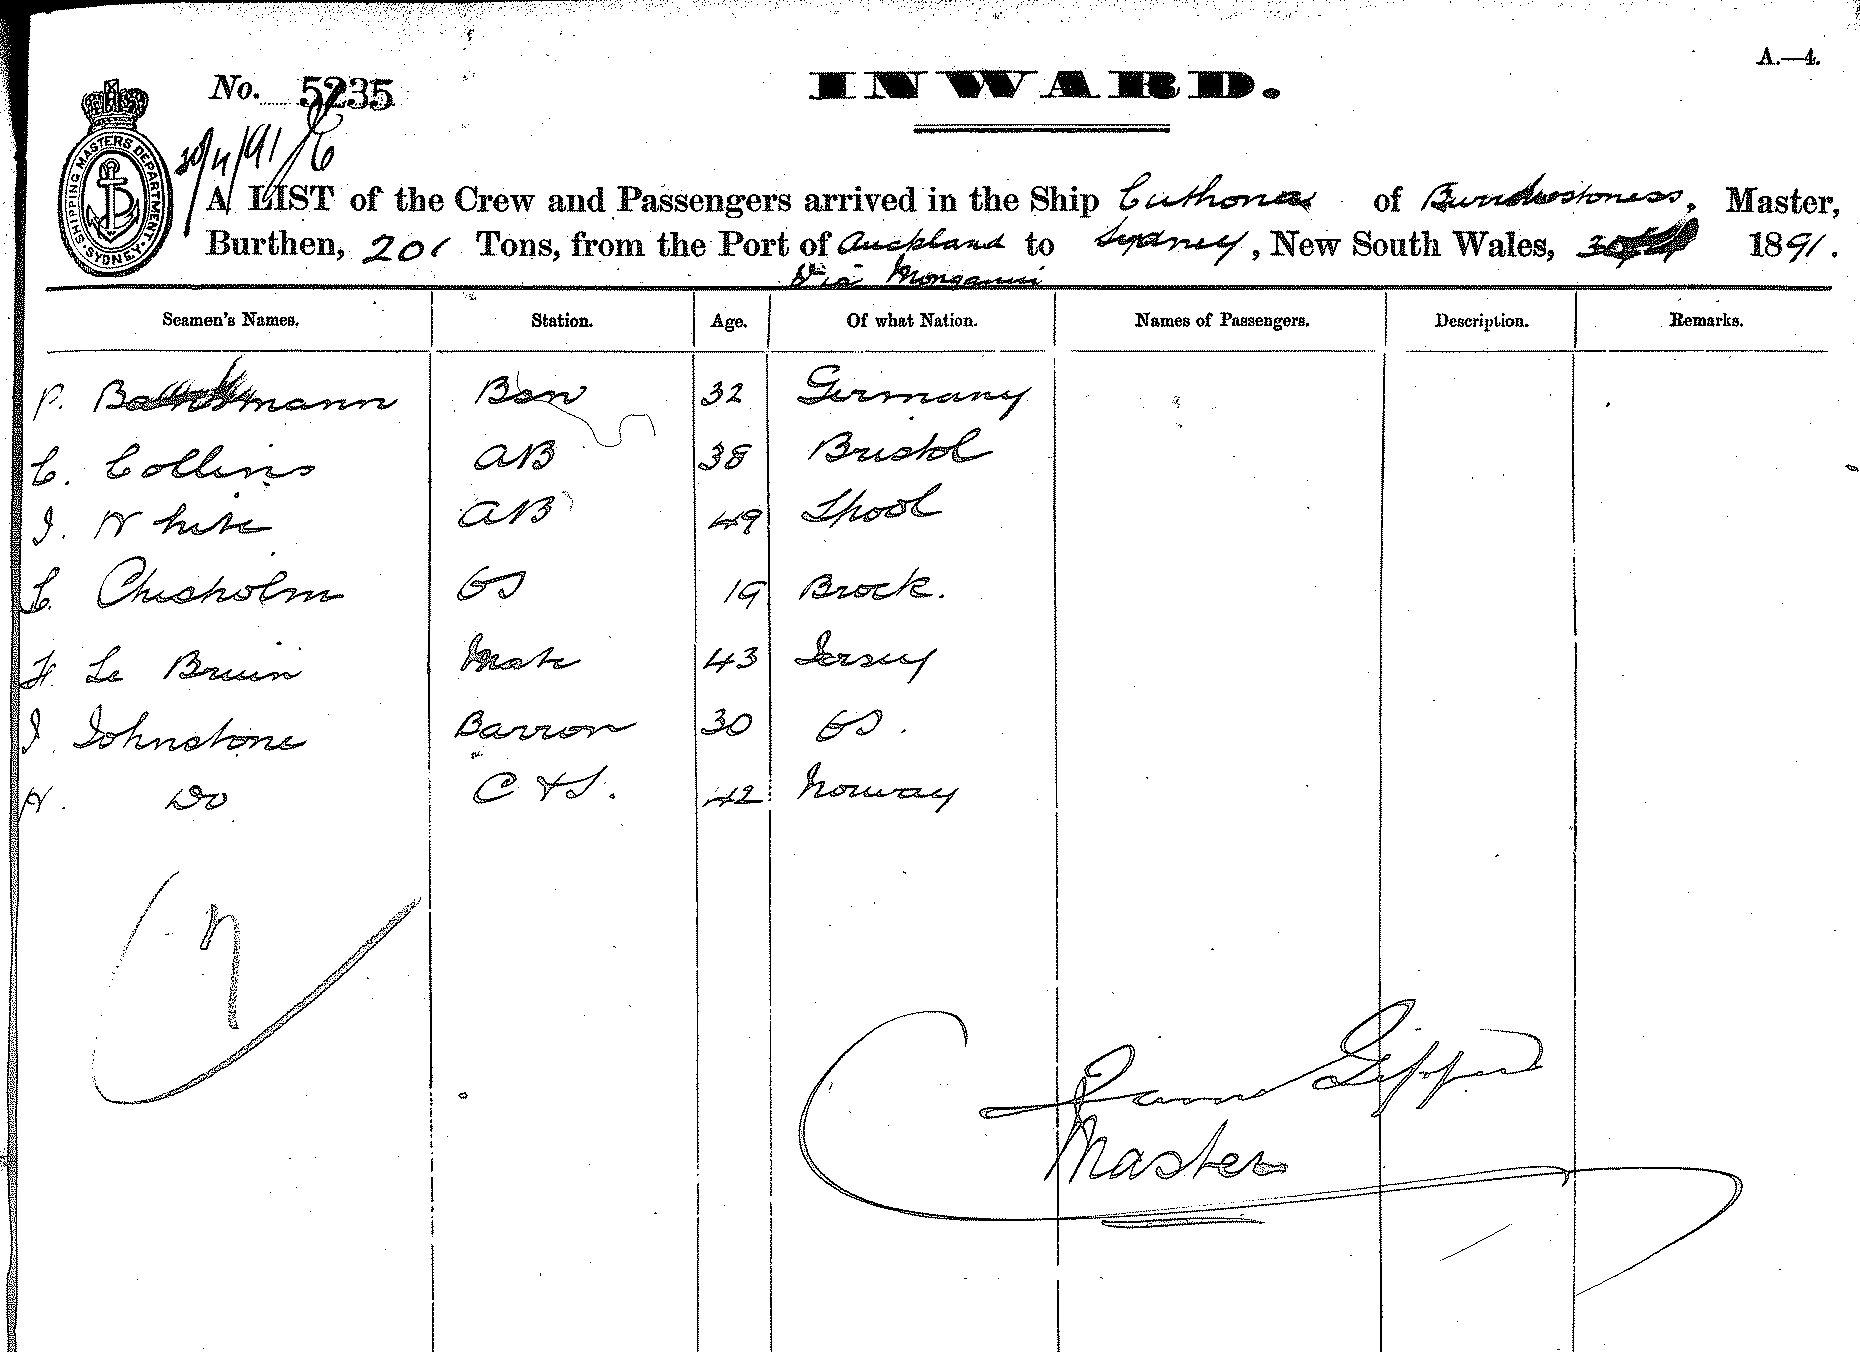 A.—4.
No. 5235
INWARD.
30/4/91
SHIPPING MASTERS DEPARTMENT SYDNEY
A LIST of the Crew and Passengers arrived in the Ship of Master,
Burthen, 201 Tons, from the Port of Auckland to Sydney, New South Wales, 1891.
Via
Seamen's Names. Station. Age. Of what Nation. Names of Passengers. Description. Remarks.
P. 32 Germany
C. Collins AB 38 Bristol
J. White AB 49 Lpool
Chisholm OS 19 Brock.
Le Bruin Mate 43 Jersey
J. Johnstone 30
Do C & S. 42 Norway
Master